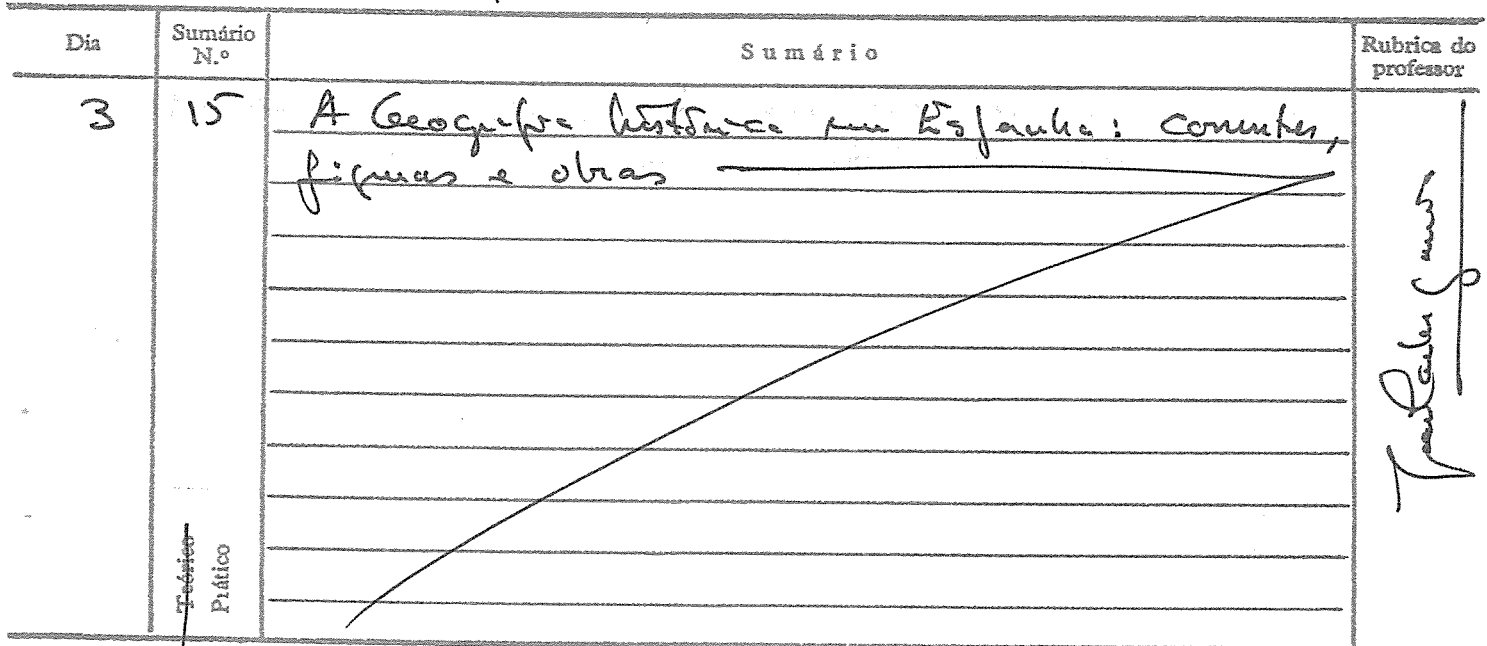 Dia
Sumário N.º
Sumário
Rubrica do professor
3
15
A Geografia histórica em Espanha: correntes,
figuras e obras
Teórico
Prático